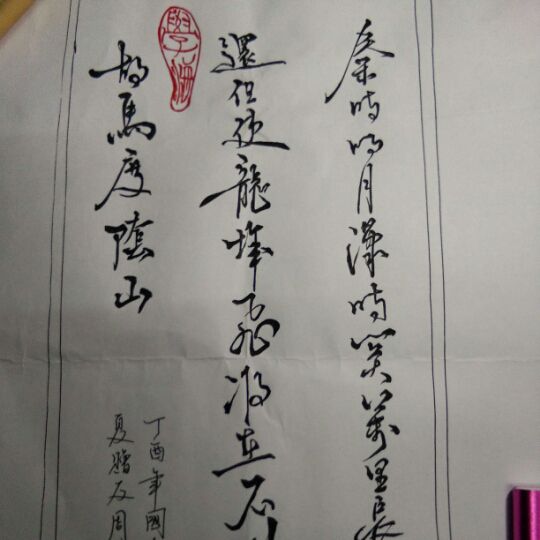 秦時明月漢時關萬里長
還但使龍城飛將在不
胡馬度陰山
丁酉年國
夏贈友周